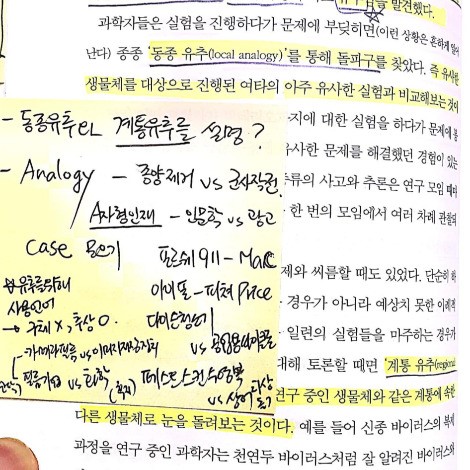 발견했다.
과학자들은 실험을 진행하다가 문제에 부딪히면(이런 상황은 흔하게 일어
난다) 종종 '동종 유추(local analogy)'를 통해 돌파구를 찾았다. 즉 유사한
생물체를 대상으로 진행된 여타의 아주 유사한 실험과 비교해보는 것이
지에 대한 실험을 하다가 문제에 봉
유사한 문제를 해결했던 경험이 있는
류의 사고와 추론은 연구 모임 때마
한 번의 모임에서 여러 차례 관찰되
제와 씨름할 때도 있었다. 단순히 하
경우가 아니라 예상치 못한 이례적
일련의 실험들을 마주하는 경우가
대해 토론할 때면 '계통 유추(regional
연구 중인 생물체와 같은 계통에 속한
다른 생물체로 눈을 돌려보는 것이다. 예를 들어 신종 바이러스의 복제
과정을 연구 중인 과학자는 천연두 바이러스처럼 잘 알려진 바이러스와
- 동종유추와 계통유추를 설명?
- Analogy - 종양제거 vs 군사작전.
A자형인재 - 인문학 vs 광고
Case 모으기
포르쉐 911 -
아이폰 - 피쳐
다이슨청소기
vs
유추를 위해
사용언어
→ 구체 X, 추상 O.
vs